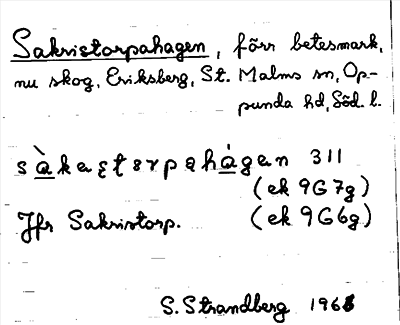 Sakristorpahagen, förr betesmark,
nu skog, Eriksberg, St. Malms sn, Op-
punda hd, Söd. l.
sàkastərpahàgən 311
(ek 9G7g)
Jfr Sakristorp. (ek 9G6g)
S. Strandberg 1968